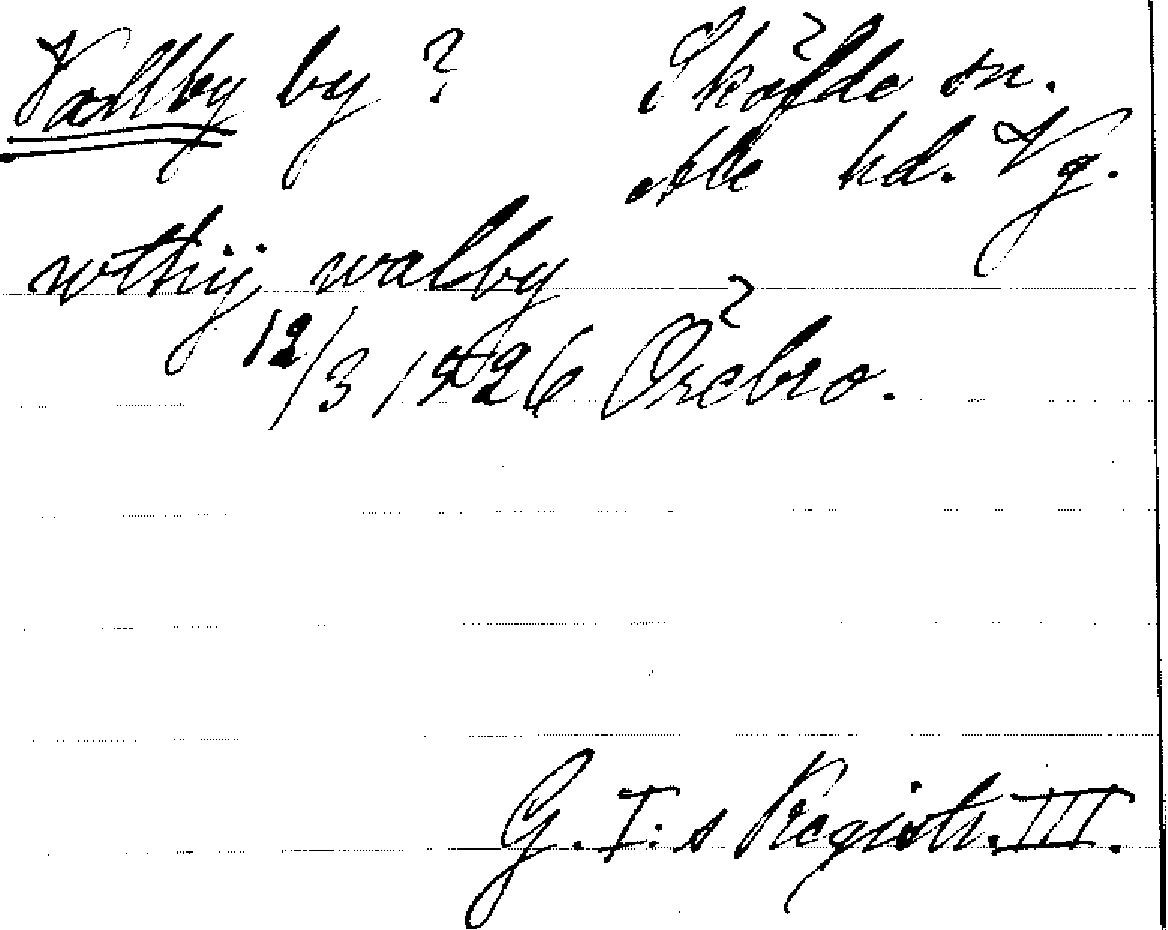 Vallby by ? Sköfde sn.
Ale hd. Vg.
wthij walby
12/3 1526 Örebro.
G. I:s Registr. III.